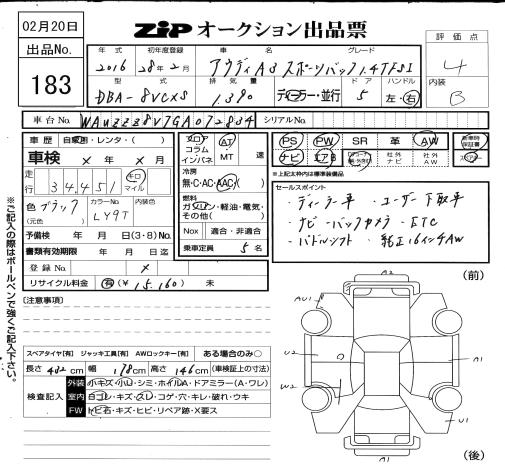 02月20日
ZIP オークション出品票
出品No.
183
評価点
4
内装
B
年式 初年度登録 車名 グレード
2016 28年2月 アウディA3 スポーツバック1.4TFSI
型式 排気量 ドア ハンドル
DBA-8VCXS 1,390 ディーラー・並行 5 左・右
車台No. WAUZZZ8V7GA072834 シリアルNo.
車歴 自家用・レンタ・( )
車検 × 年 × 月
走行 34,451 キロ マイル
色 ブラック (元色) カラーNo. LY9T 内装色
予備検 年 月 日(3・8)No.
書類有効期限 年 月 日迄
登録No. ×
リサイクル料金 有(¥15,160) 未
フロア コラム インパネ
AT MT 速
冷房
無・C・AC・AAC( )
燃料
ガソリン・軽油・電気・その他( )
Nox 適合・非適合
乗車定員 5 名
PS PW SR 革 AW
ナビ エアB 社外ナビ 社外AW
新車時保証書
※上記太枠内は標準装備品
セールスポイント
・ディーラー車 ・ユーザー下取車
・ナビ ・バックカメラ ・ETC
・パドルシフト ・純正16インチAW
※ご記入の際はボールペンで強くご記入下さい。
[注意事項]
スペアタイヤ[有] ジャッキ工具[有] AWロックキー[有] ある場合のみ○
長さ 432cm 幅 178cm 高さ 146cm (車検証上の寸法)
検査記入
外装 小キズ・小U・シミ・ホイルA・ドアミラー(A・ワレ)
室内 ヨゴレ・キズ・スレ・コゲ・穴・キレ・破れ・ウキ
FW トビ石・キズ・ヒビ・リペア跡・X要ス
(前)
A2
AU1
U2
A1
W2
U1
(後)